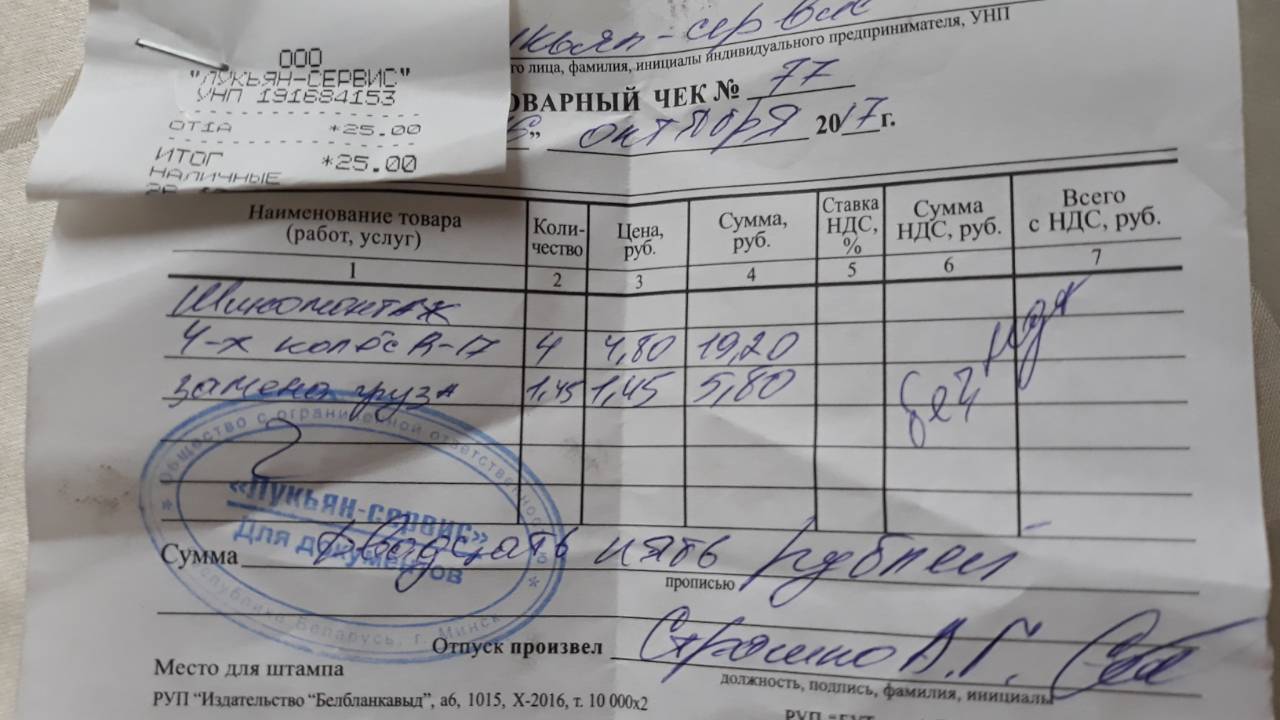 ООО
"ЛУКЬЯН-СЕРВИС"
УНП 191684153
ОТ1А *25.00
ИТОГ *25.00
НАЛИЧНЫЕ
кьян-сервис
го лица, фамилия, инициалы индивидуального предпринимателя, УНП
ОВАРНЫЙ ЧЕК № 77
" октября 2017г.
Наименование товара (работ, услуг) Коли-чество Цена, руб. Сумма, руб. Ставка НДС, % Сумма НДС, руб. Всего с НДС, руб.
1 2 3 4 5 6 7
Шиномонтаж
4-х колёс R-17 4 4,80 19,20
замена груза 1,45 1,45 5,80
без НДС
Общество с ограниченной ответственностью
«Лукьян-сервис»
Для документов
Республика Беларусь, г. Минск
Сумма двадцать пять рублей
прописью
Отпуск произвел Страшко А.Г.
должность, подпись, фамилия, инициалы
Место для штампа
РУП “Издательство “Белбланкавыд”, а6, 1015, X-2016, т. 10 000х2